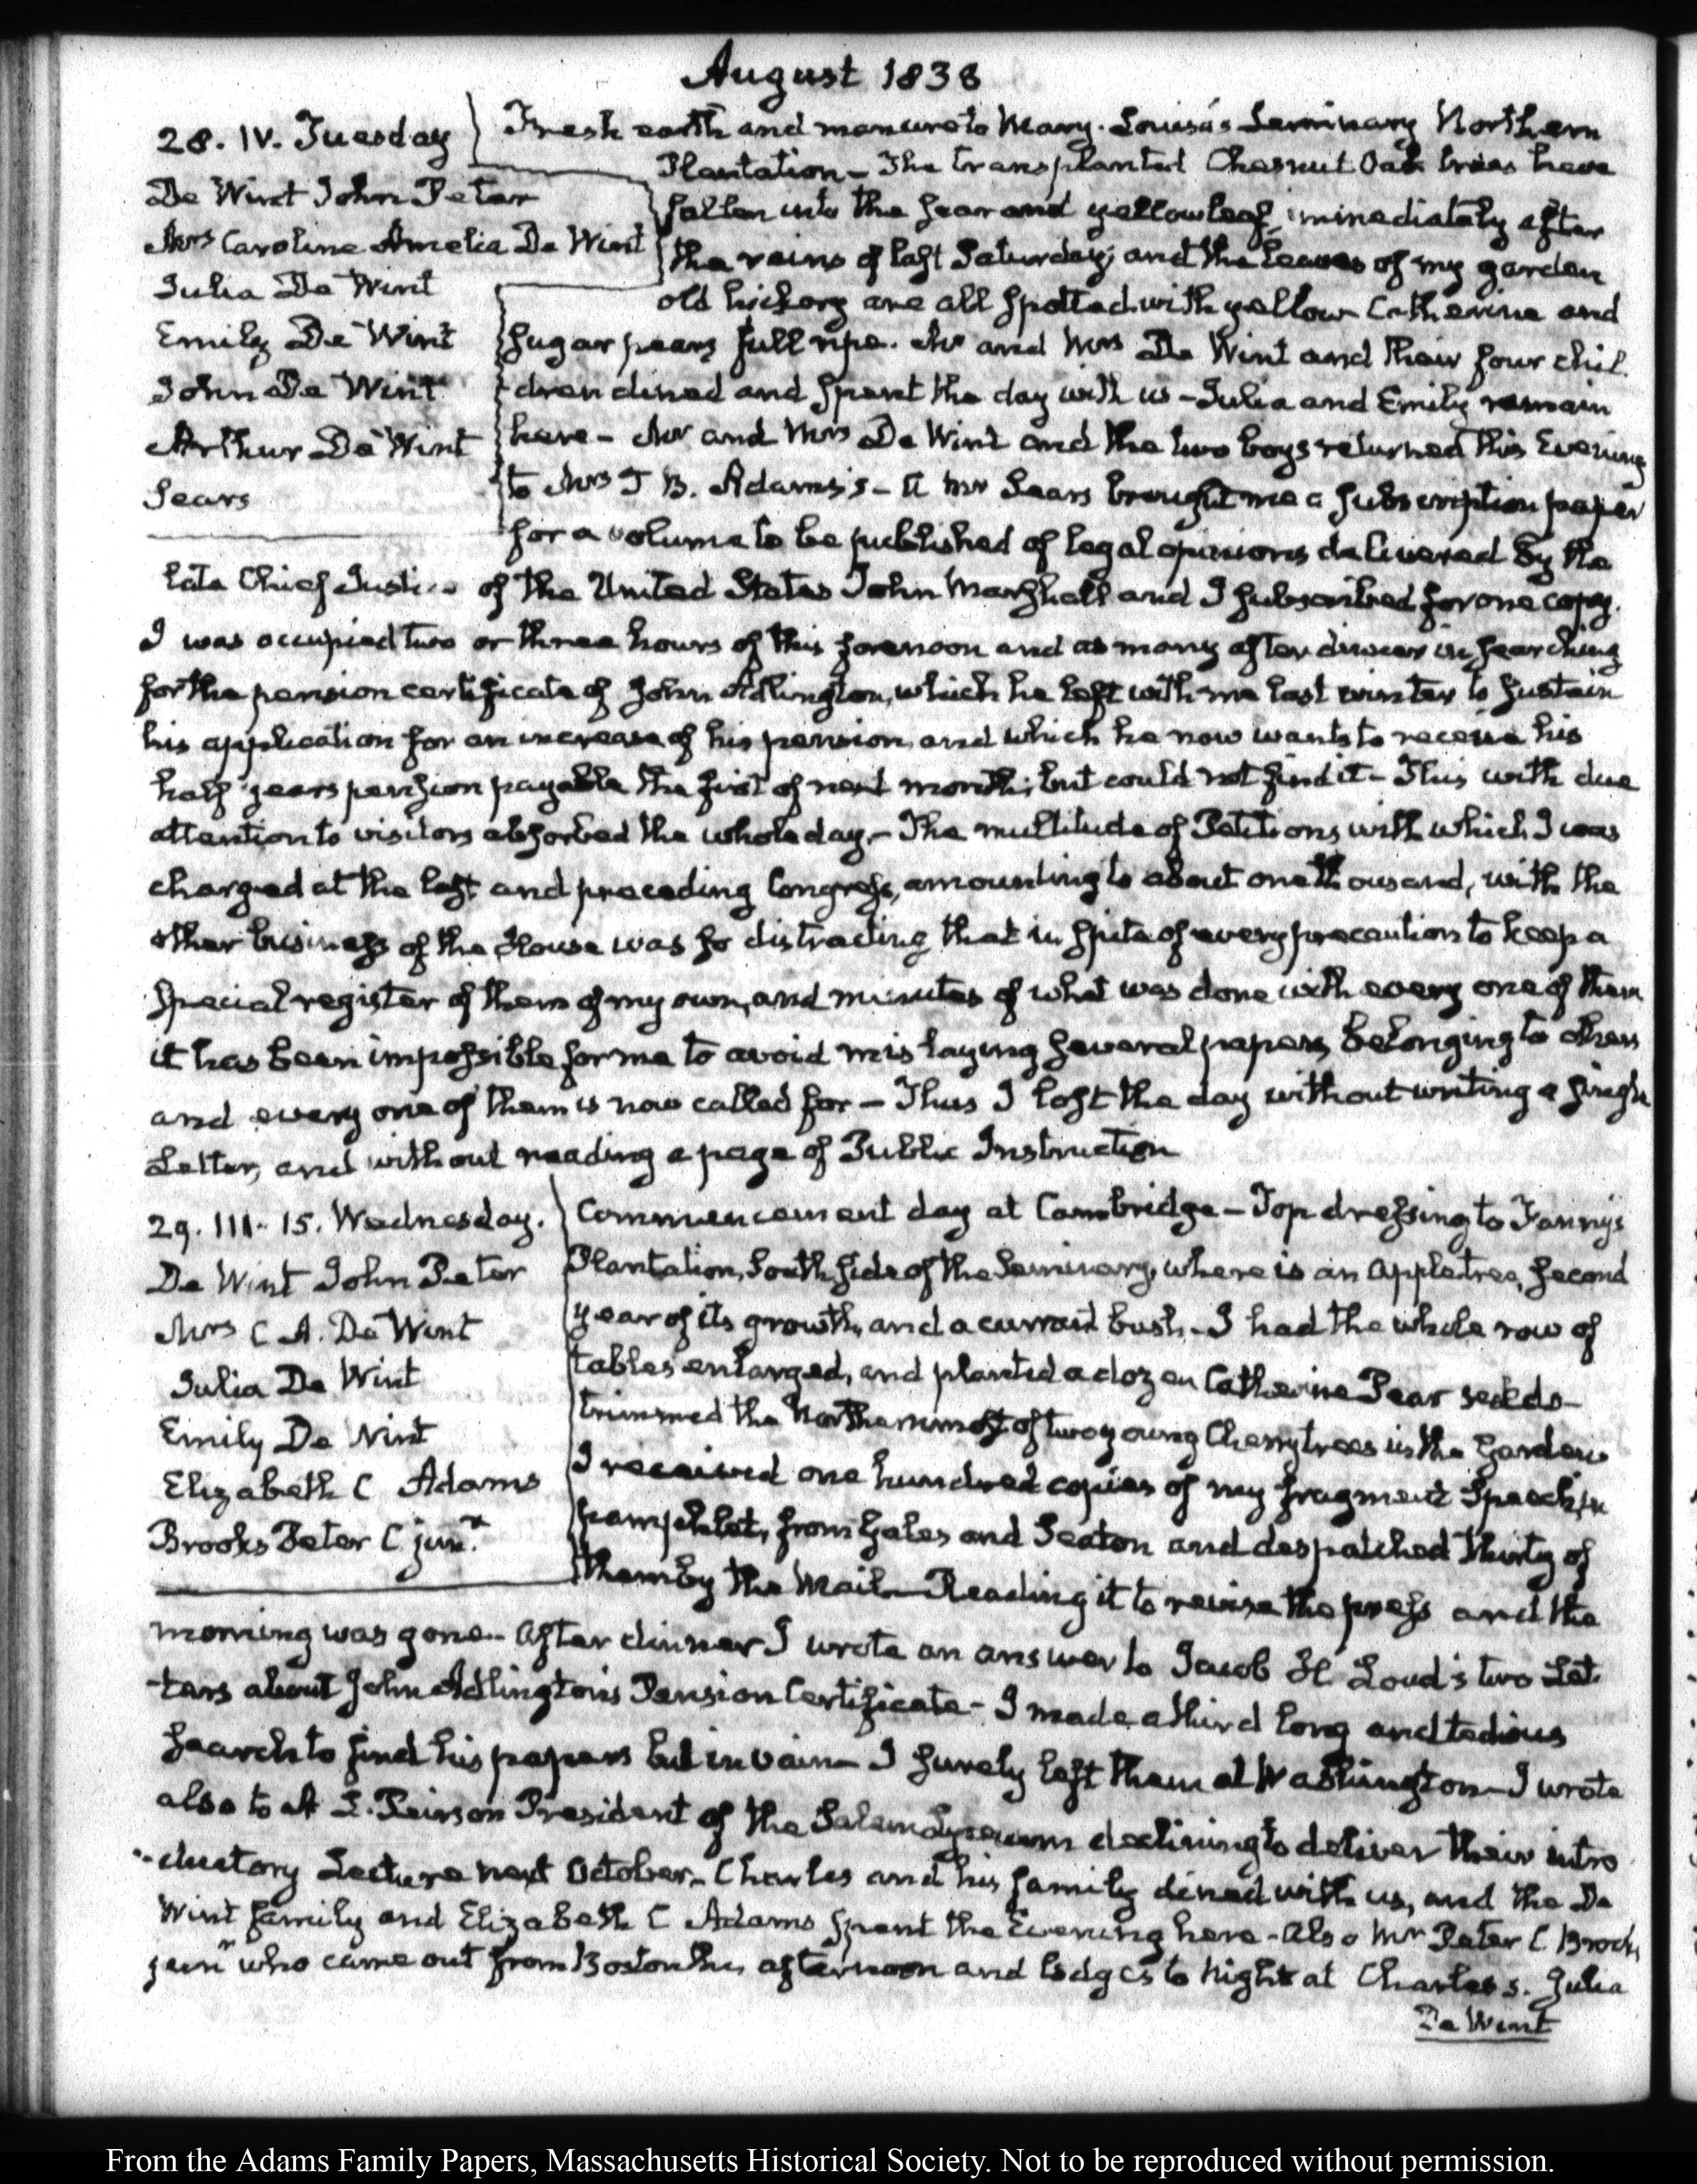 August 1838
28. IV. Tuesday
De Wint John Peter
Mrs Caroline Amelia De Wint
Julia De Wint
Emily De Wint
John De Wint
Arthur De Wint
Sears
Fresh earth and manure to Mary-Louisa's Seminary Northern
Plantation - The transplanted Chesnut Oak trees have
fallen into the sear and yellow leaf, immediately after
the rains of last Saturday; and the leaves of my garden
old hickory are all spotted with yellow - Catherine and
sugar pears full ripe. Mr and Mrs De Wint and their four chil-
dren dined and spent the day with us - Julia and Emily remain
here - Mr and Mrs De Wint and the two boys returned this Evening
to Mrs T B. Adams's - A Mr Sears brought me a subscription paper
for a volume to be published of legal opinions delivered by the
late Chief Justice of the United States John Marshall and I subscribed for one copy.
I was occupied two or three hours of this forenoon and as many after dinner in searching
for the pension certificate of John Adlington, which he left with me last winter to sustain
his application for an increase of his pension, and which he now wants to receive his
half years pension payable the first of next month; but could not find it - This with due
attention to visitors absorbed the whole day. - The multitude of Petitions with which I was
charged at the last and preceding Congress, amounting to about one thousand, with the
other business of the House was so distracting that in spite of every precaution to keep a
special register of them of my own, and minutes of what was done with every one of them
it has been impossible for me to avoid mislaying several papers belonging to others
and every one of them is now called for - Thus I lost the day without writing a single
Letter, and without reading a page of Public Instruction
29. III. 15. Wednesday.
De Wint John Peter
Mrs C A. De Wint
Julia De Wint
Emily De Wint
Elizabeth C Adams
Brooks Peter C junr.
Commencement day at Cambridge - Top dressing to Fanny's
Plantation, South side of the Seminary, where is an Apple tree, second
year of its growth, and a currant bush. I had the whole row of
tables enlarged, and planted a dozen Catherine Pear seeds -
trimmed the Northernmost of two young Cherry trees in the Garden
I received one hundred copies of my fragment Speech, in
pamphlet, from Gales and Seaton and despatched thirty of
them by the Mail - Reading it to revise the press and the
morning was gone - After dinner I wrote an answer to Jacob H. Loud's two Let-
ters about John Adlington's Pension Certificate - I made a third long and tedious
search to find his papers but in vain - I surely left them at Washington - I wrote
also to A L. Peirson President of the Salem Lyceum declining to deliver their intro
-ductory Lecture next October. - Charles and his family dined with us, and the De
Wint family and Elizabeth C Adams spent the Evening here - Also Mr Peter C Brooks
junr who came out from Boston this afternoon and lodges to Night at Charles's. Julia
De Wint
From the Adams Family Papers, Massachusetts Historical Society. Not to be reproduced without permission.